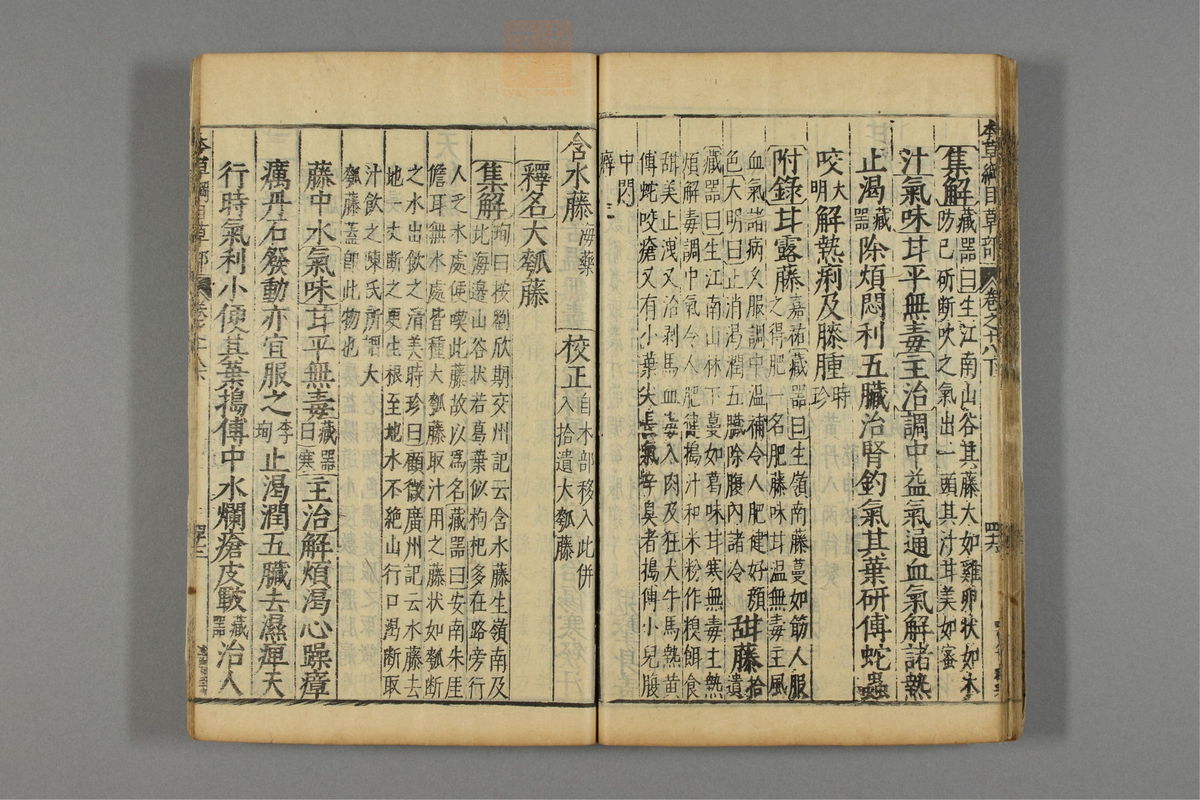 本草綱目草部 卷之十八下
集解藏器曰生江南山谷其藤大如雞卵狀如木
防己斫斷吹之氣出一頭其汁甘美如蜜
汁氣味甘平無毒主治調中益氣通血氣解諸熱
止渴藏器除煩悶利五臟治腎釣氣其葉研傅蛇蟲
咬大明解熱痢及膝腫時珍
附錄甘露藤嘉祐藏器曰生嶺南藤蔓如筯人服
之得肥一名肥藤味甘溫無毒主風
血氣諸病久服調中溫補令人肥健好顏
色大明曰止消渴潤五臟除腹內諸冷甜藤拾遺
藏器曰生江南山林下蔓如葛味甘寒無毒主熱
煩解毒調中氣令人肥健搗汁和米粉作糗餌食
甜美止洩又治剥馬血毒入肉及狂大牛馬熱黃
傅蛇咬瘡又有小葉尖長氣辛臭者搗傅小兒腹
中閃
癖
含水藤海藥 校正自木部移入此併
入拾遺大瓠藤
釋名大瓠藤
集解珣曰按劉欣期交州記云含水藤生嶺南及
此海邊山谷狀若葛葉似枸杞多在路旁行
人乏水處便喫此藤故以爲名藏器曰安南朱厓
儋耳無水處皆種大瓠藤取汁用之藤狀如瓠斷
之水出飲之清美時珍曰顧微廣州記云水藤去
地一丈斷之更生根至地水不絕山行口渴斷取
汁飲之陳氏所謂大
瓠藤蓋卽此物也
藤中水氣味甘平無毒藏器曰寒主治解煩渴心躁瘴
癘丹石發動亦宜服之李珣止渴潤五臟去濕痺天
行時氣利小便其葉搗傅中水爛瘡皮皸藏器治人
本草綱目草部